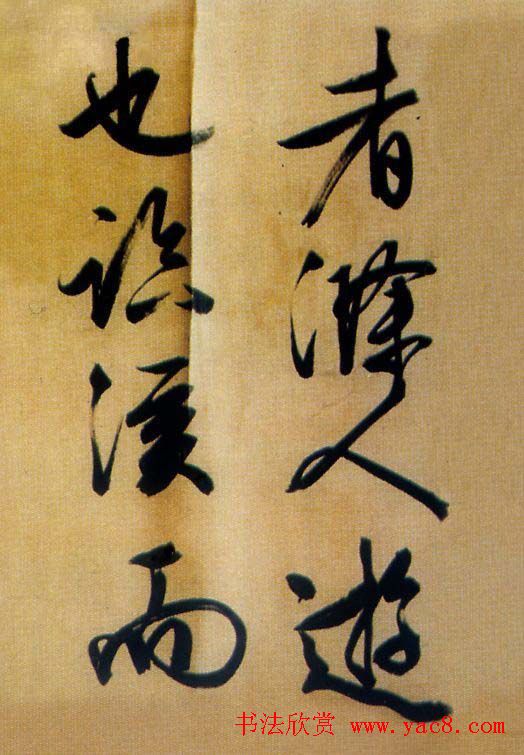 者滁人遊
也臨溪而
书法欣赏 www.yac8.com